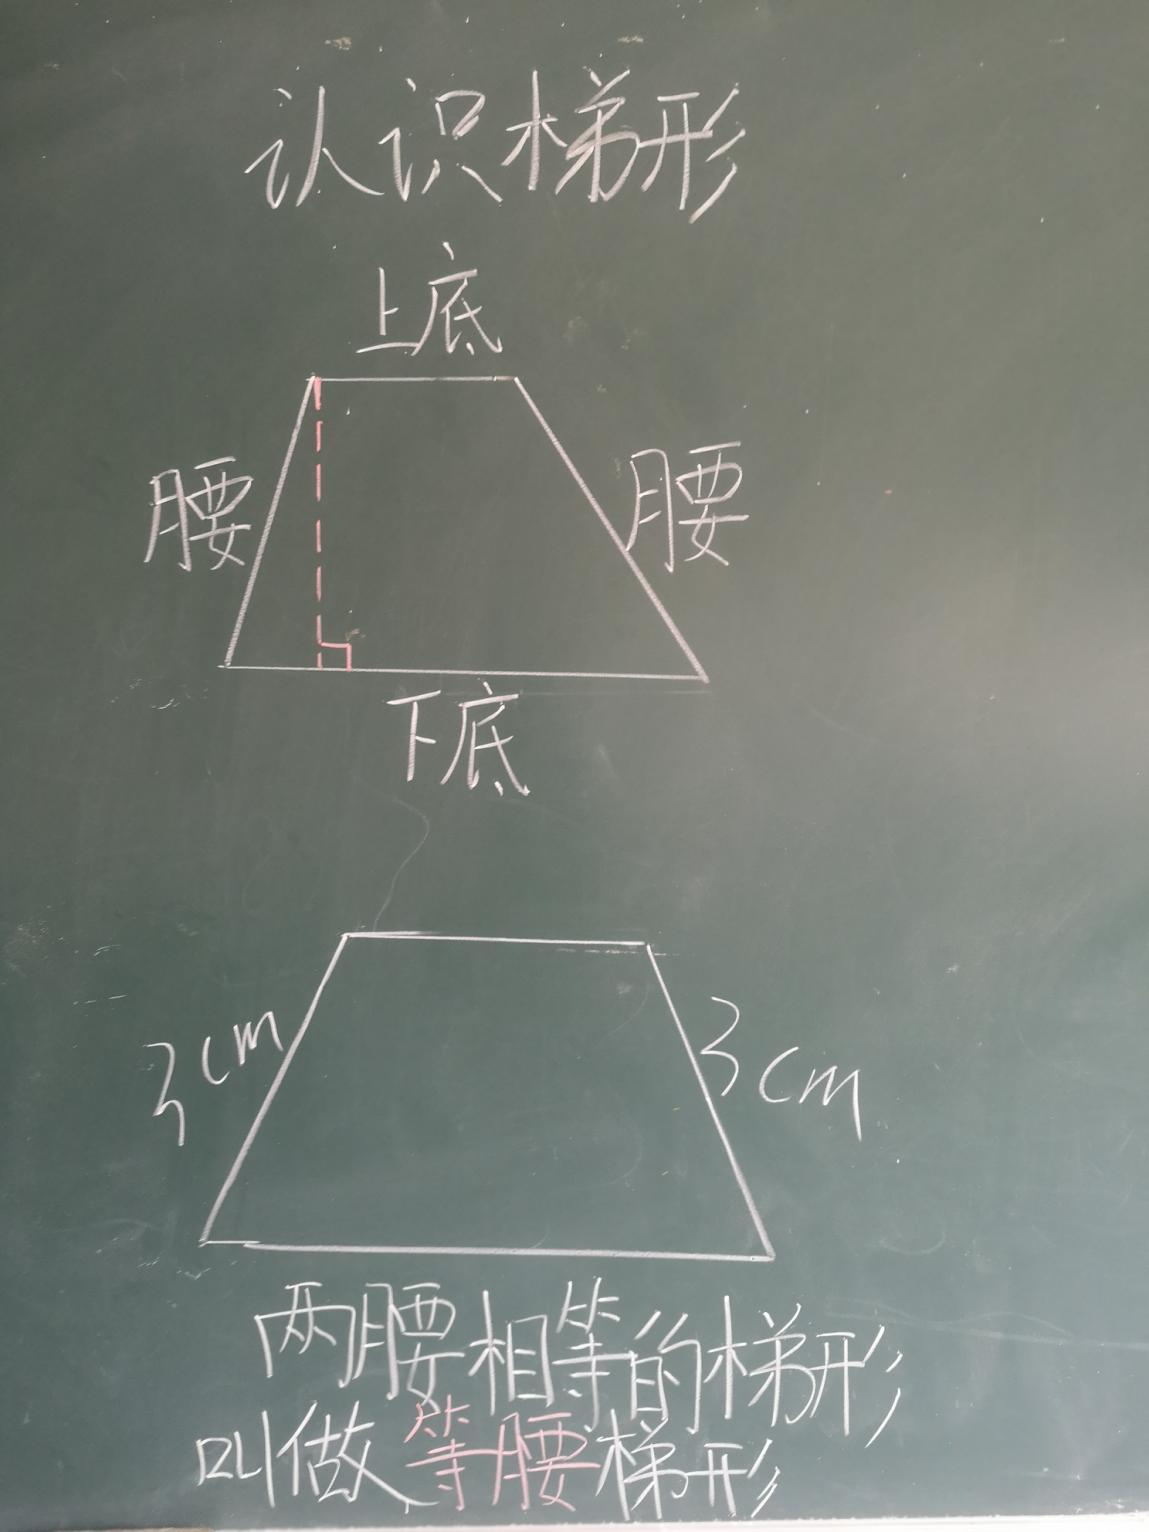 认识梯形
上底
腰
腰
下底
3cm
3cm
两腰相等的梯形
叫做等腰梯形